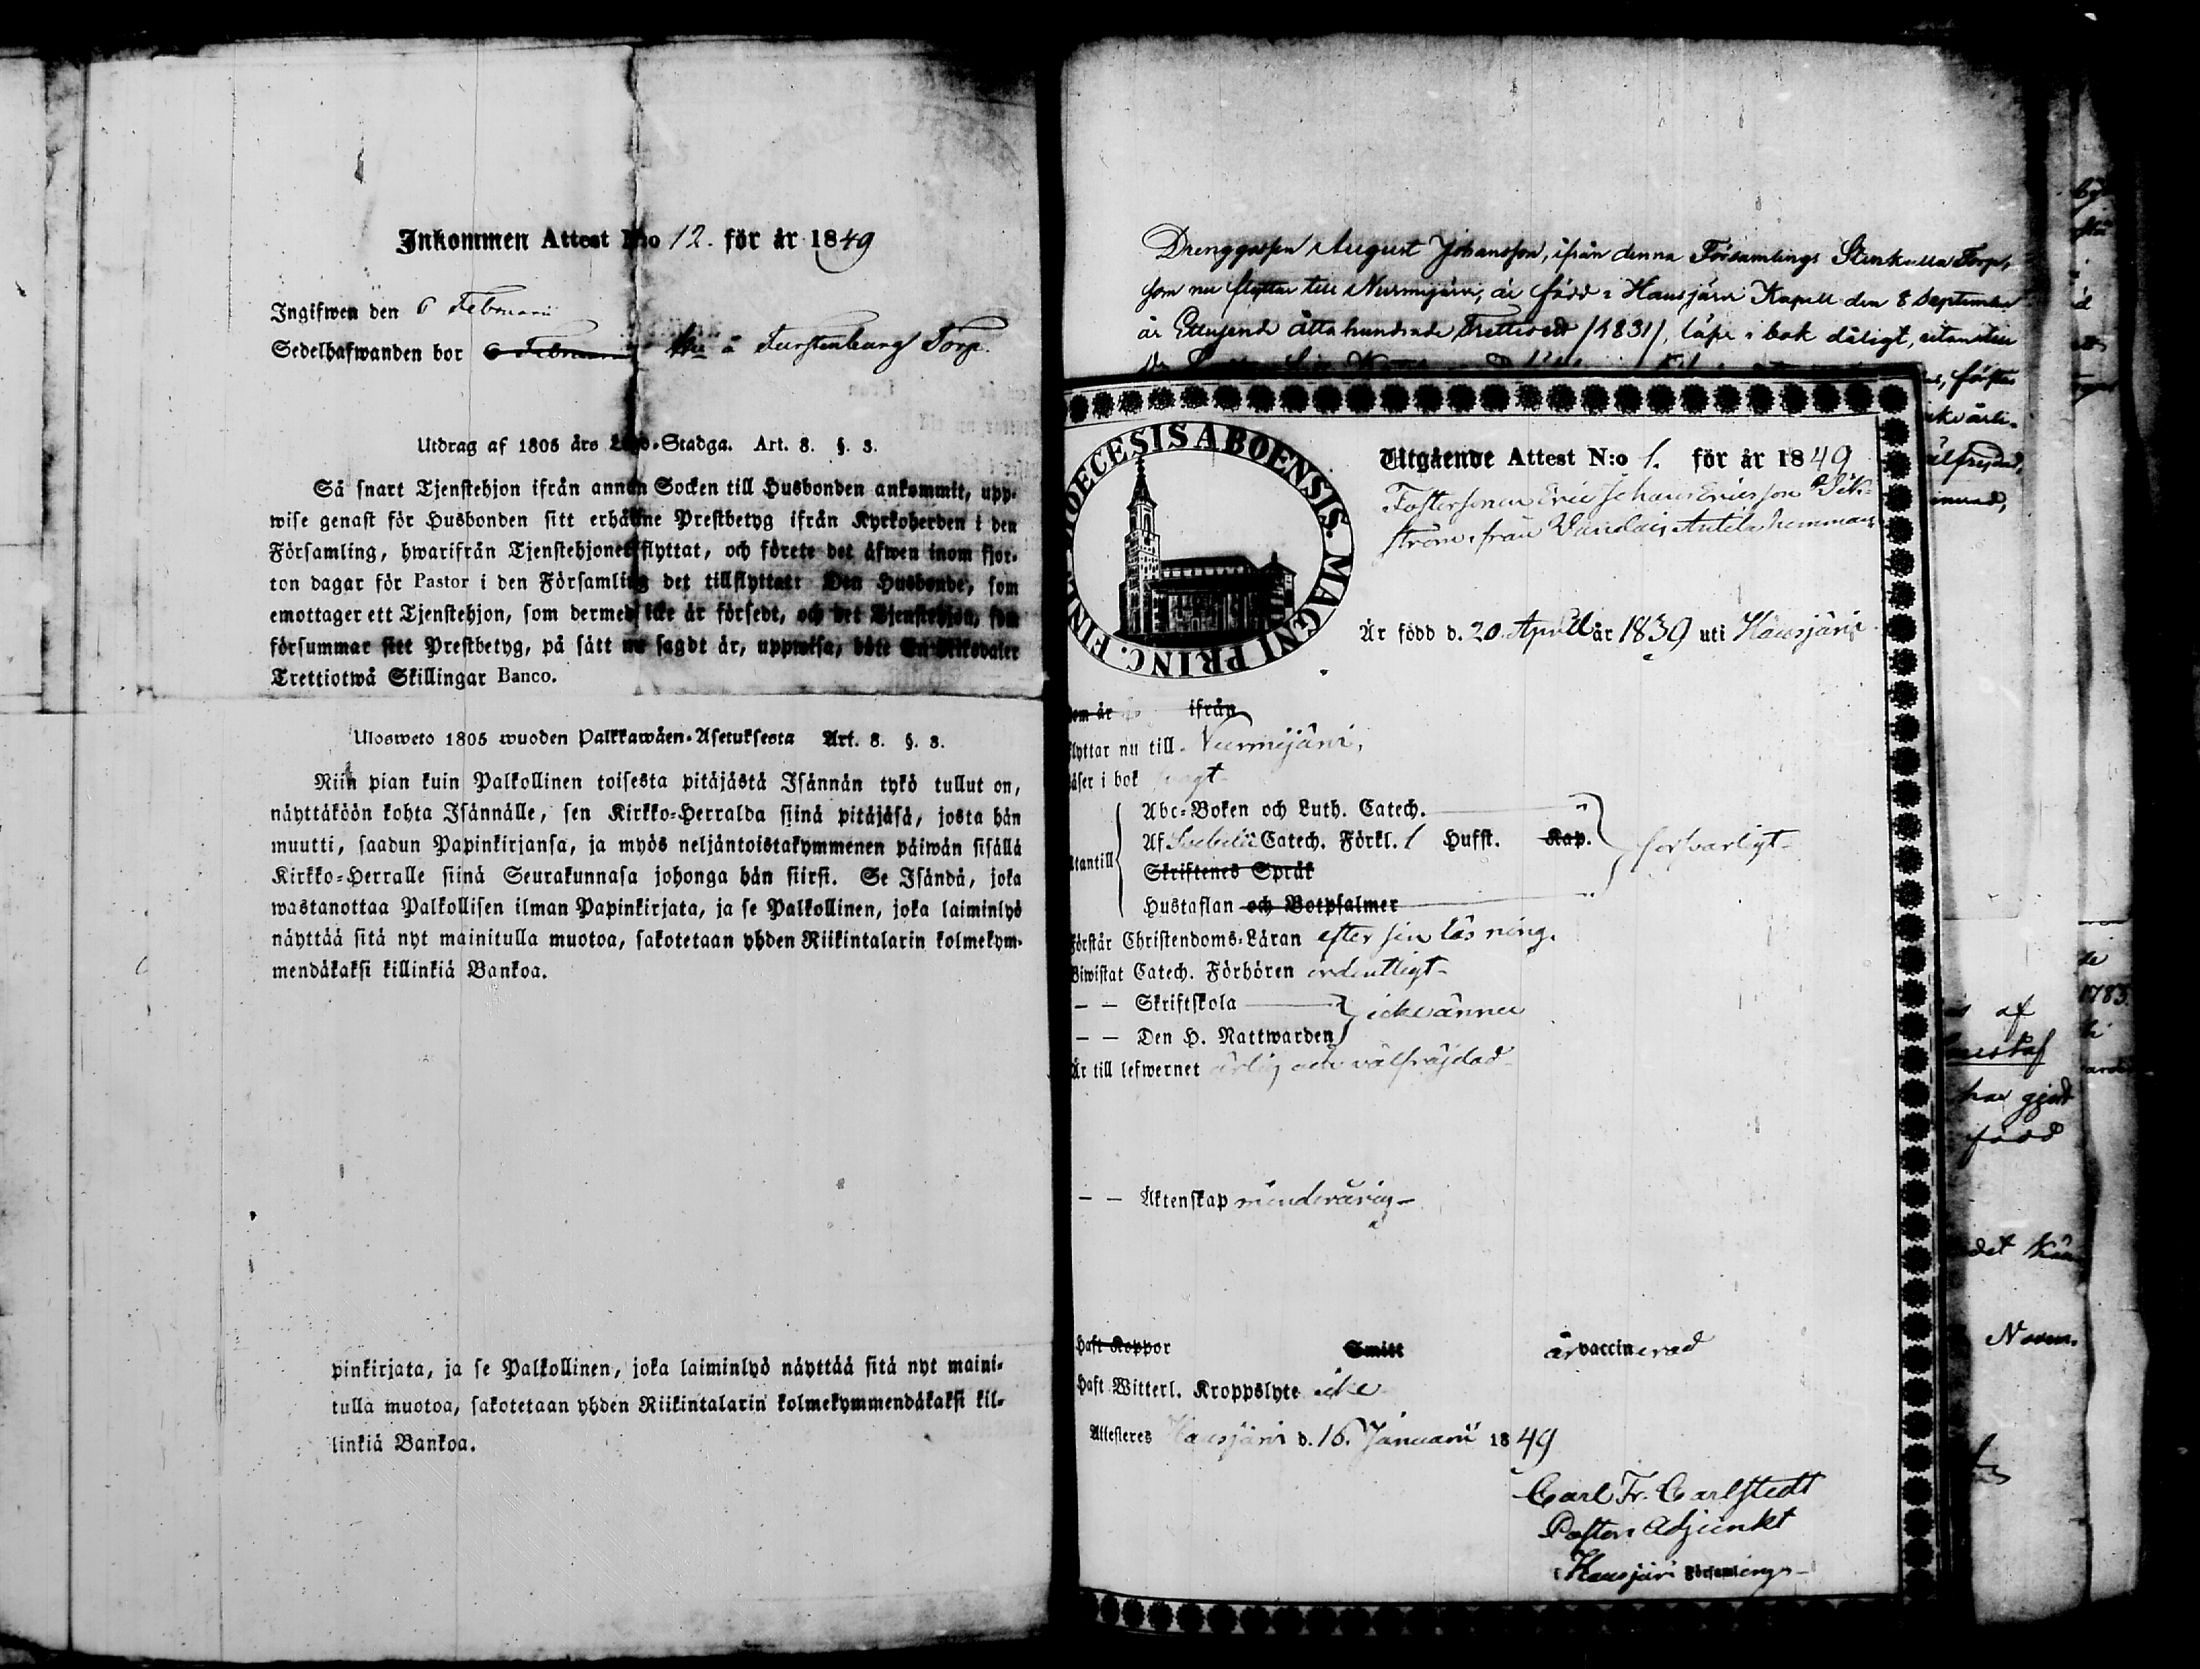 Inkommen Attest N:o 12. för år 1849
Ingifwen den 6 Februarii
Sedelhafwanden bor 6 Februarii å Furstenburg Torp.
Utdrag af 1805 års Lego-Stadga. Art. 8. §. 3.
Så snart Tjenstehjon ifrån annan Socken till Husbonden ankommit, upp-
wise genast för Husbonden sitt erhållne Prestbetyg ifrån Kyrkoherden i den
Församling, hwarifrån Tjenstehjonet flyttat, och förete det äfwen inom fjor-
ton dagar för Pastor i den Församling det tillflyttat. Den Husbonde, som
emottager ett Tjenstehjon, som dermed icke är försedt, och det Tjenstehjon, som
försummar sitt Prestbetyg, på sätt nu sagdt är, uppwisa, böte En Riksdaler
Trettiotwå Skillingar Banco.
Ulosweto 1805 wuoden Palkkawäen-Asetuksesta Art. 8. §. 3.
Niin pian kuin Palkollinen toisesta pitäjästä Isännän tykö tullut on,
näyttäköön kohta Isännälle, sen Kirkko-Herralda siinä pitäjäsä, josta hän
muutti, saadun Papinkirjansa, ja myös neljäntoistakymmenen päiwän sisällä
Kirkko-Herralle siinä Seurakunnasa johonga hän siirsi. Se Isändä, joka
wastanottaa Palkollisen ilman Papinkirjata, ja se Palkollinen, joka laiminlyö
näyttää sitä nyt mainitulla muotoa, sakotetaan yhden Riikintalarin kolmekym-
mendäkaksi killinkiä Bankoa.
pinkirjata, ja se Palkollinen, joka laiminlyö näyttää sitä nyt maini-
tulla muotoa, sakotetaan yhden Riikintalarin kolmekymmendäkaksi kil-
linkiä Bankoa.
Drenggossen August Johansson, ifrån denna Församlings Stenkulla Torp,
som nu flyttar till Nurmijärvi, är född i Hausjärvi Kapell den 8 September
år Ettusende åttahundrade Trettioett /1831/, läser i bok dåligt, utantill
DIOECESIS ABOENSIS. MAGNI PRINC. FINL.
Utgående Attest N:o 1. för år 1849
Fostersonen Eric Johan Ericsson Wik-
ström, från Antila hemman
Är född d. 20. April år 1839 uti Hausjärvi
som är ifrån
flyttar nu till Nurmijärvi,
läser i bok swagt
Abc-Boken och Luth. Catech.
Utantill Af Svebelii Catech. Förkl. 1 Hufst. Kap. försvarligt
Skriftenes Språk
Hustaflan och Botpsalmer
Förstår Christendoms-Läran efter sin läsning.
Biwistat Catech. Förhören ordentligt
— — Skriftskola icke ännu
— — Den H. Nattwarden
Är till lefwernet ärlig och välfräjdad
— — Äktenskap minderårig
Haft Koppor Smitt är vaccinerad
Haft Witterl. Kroppslyte icke
Attesteres Hausjärvi d. 16. Januarii 1849
Carl Fr. Carlstedt
Pastors Adjunkt
i Hausjärvi Församlings
af
har gjort
född
det
Novem.
1783.